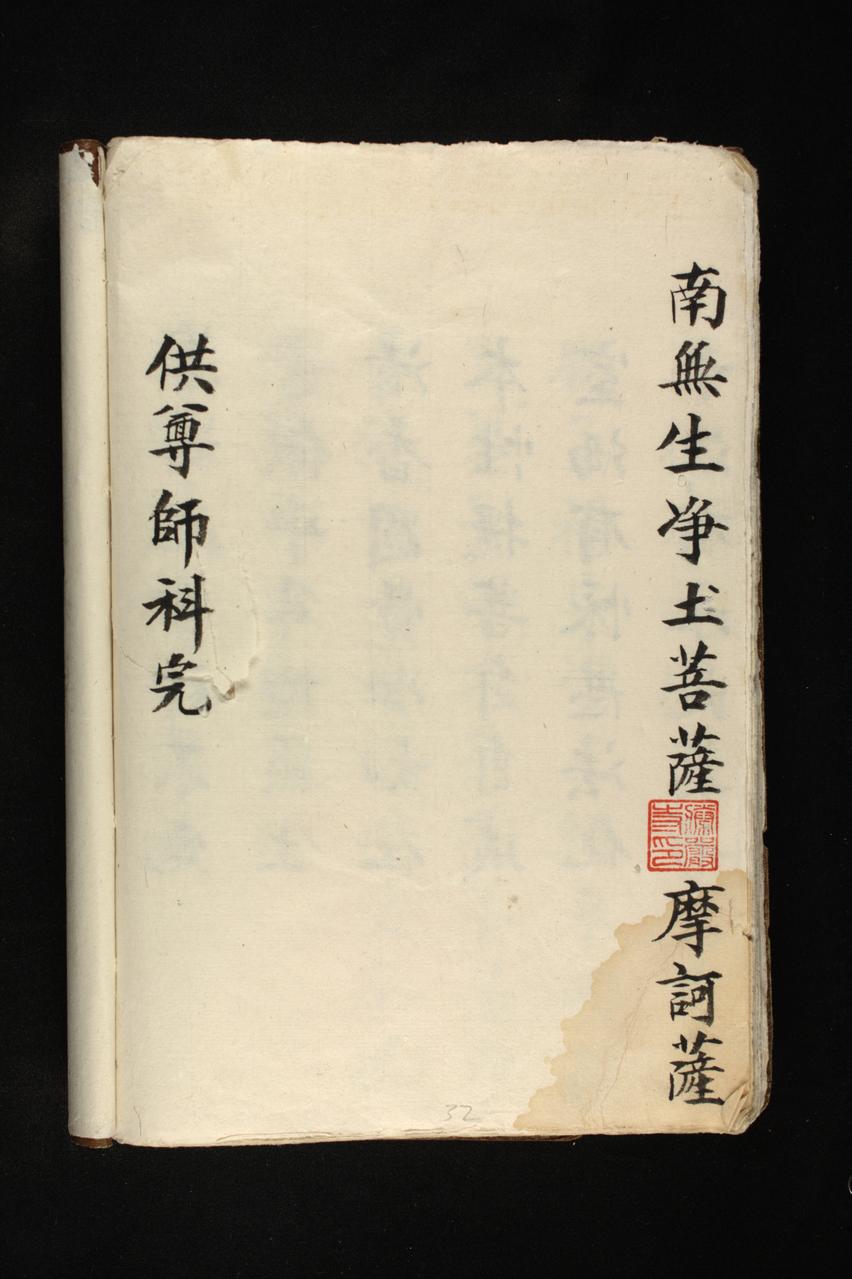 南無生净土菩薩 摩訶薩
供尊師科完
32